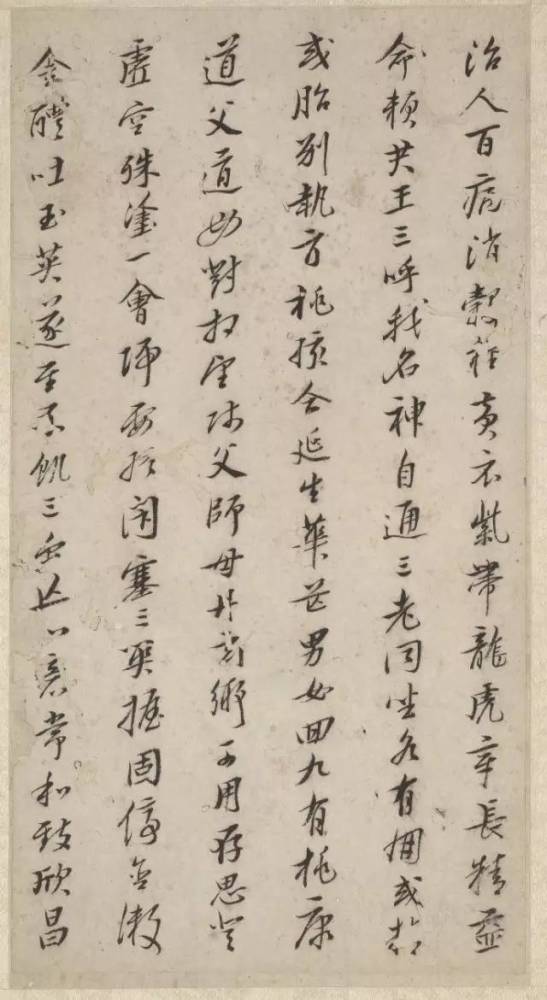 治人百病消穀粮黃衣紫帶龍虎章長精益
命賴共王三呼我名神自通三老同坐各有朋或精
或胎別執方桃孩合延生華芒男女回九有桃康
道父道母對相望師父師母丹玄鄉可用存思登
虛空殊塗一會歸要終閉塞三關握固停含漱
金醴吐玉英遂至不飢三虫亡心意常和致欣昌